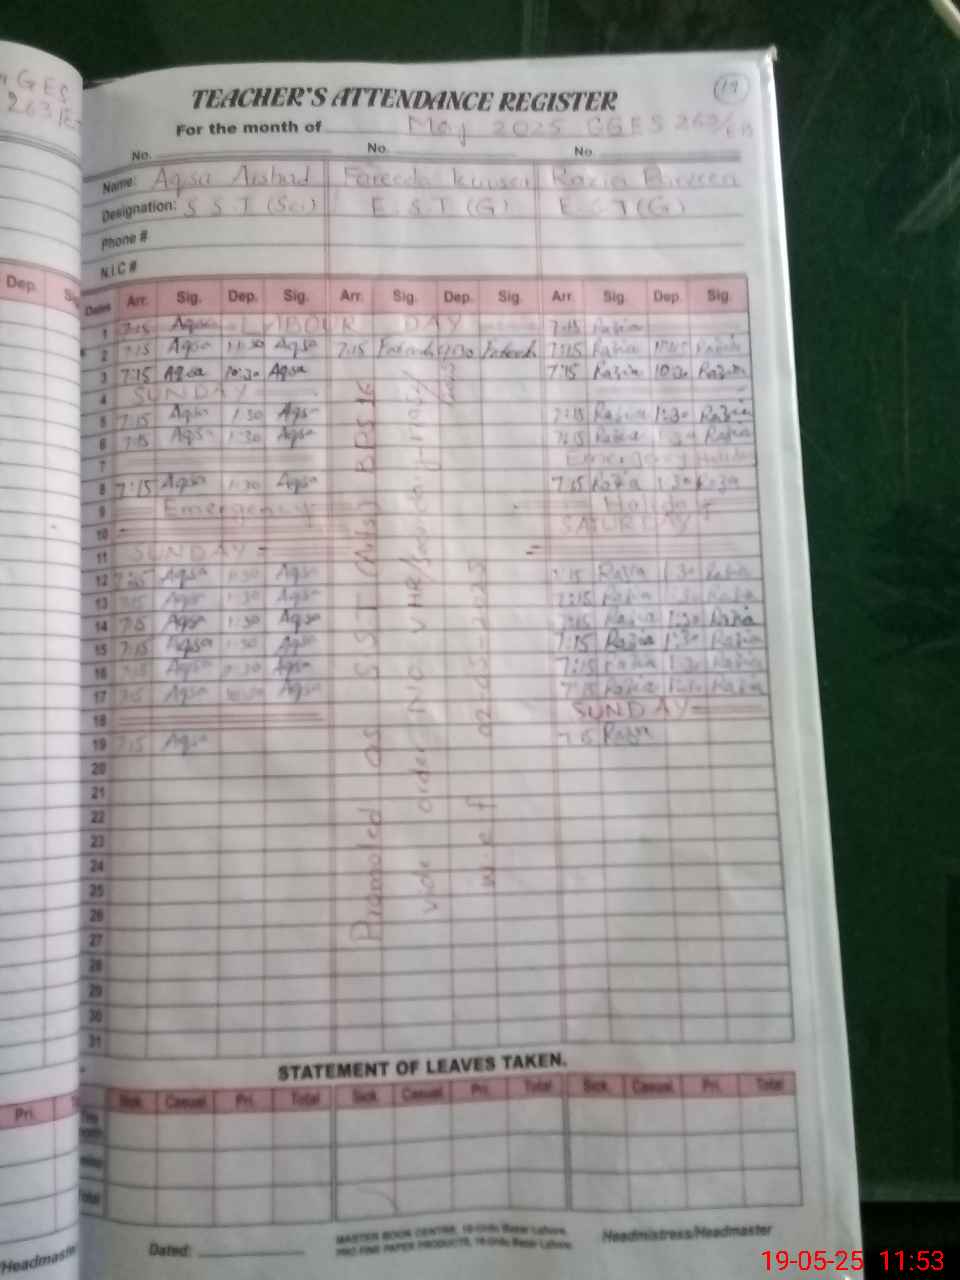 GES
263/E
TEACHER'S ATTENDANCE REGISTER
19
For the month of May 2025 GGES 263/EB
No. No. No.
Name: Aqsa Arshad Fareeda kausar Razia Parveen
Designation: S S.T (Sci) E.S.T (G) E.S.T (G)
Phone #
N.I.C #
Dep.
Dates Arr. Sig. Dep. Sig. Arr. Sig. Dep. Sig. Arr. Sig. Dep. Sig.
1 7:15 Aqsa LABOUR DAY 7:15 Razia
2 7:15 Aqsa Aqsa 7:15 7:15 Razia Razia
3 7:15 Aqsa 10:30 Aqsa 7:15 Razia 10:30 Razia
4 SUNDAY
5 7:15 Aqsa 1:30 Aqsa 7:15 Razia 1:30 Razia
6 7:15 Aqsa 1:30 Aqsa 7:15 Razia 1:30 Razia
7 Emergency Holiday
8 7:15 Aqsa 1:30 Aqsa 7:15 Razia 1:30 Razia
9 Emergency Holiday
10 SATURDAY
11 SUNDAY
12 7:15 Aqsa 1:30 Aqsa 7:15 Razia 1:30 Razia
13 7:15 Aqsa 1:30 Aqsa 7:15 Razia 1:30 Razia
14 7:15 Aqsa 1:30 Aqsa 7:15 Razia 1:30 Razia
15 7:15 Aqsa 1:30 Aqsa 7:15 Razia 1:30 Razia
16 7:15 Aqsa 1:30 Aqsa 7:15 Razia 1:30 Razia
17 7:15 Aqsa Aqsa 7:15 Razia Razia
18 SUNDAY
19 7:15 Aqsa 7:15 Razia
20
21
22
23
24
25
26
27
28
29
30
31
Promoted as S.S.T BPS 16
vide order NO
w.e.f 02-05-2025
STATEMENT OF LEAVES TAKEN.
Pri.
Sick. Casual. Pri. Total Sick. Casual. Pri. Total Sick. Casual. Pri. Total
Total
MASTER BOOK CENTRE, 10-Urdu Bazar Lahore.
PRO FINE PAPER PRODUCTS, 10-Urdu Bazar Lahore.
Dated: Headmistress/Headmaster
/Headmaster
19-05-25 11:53